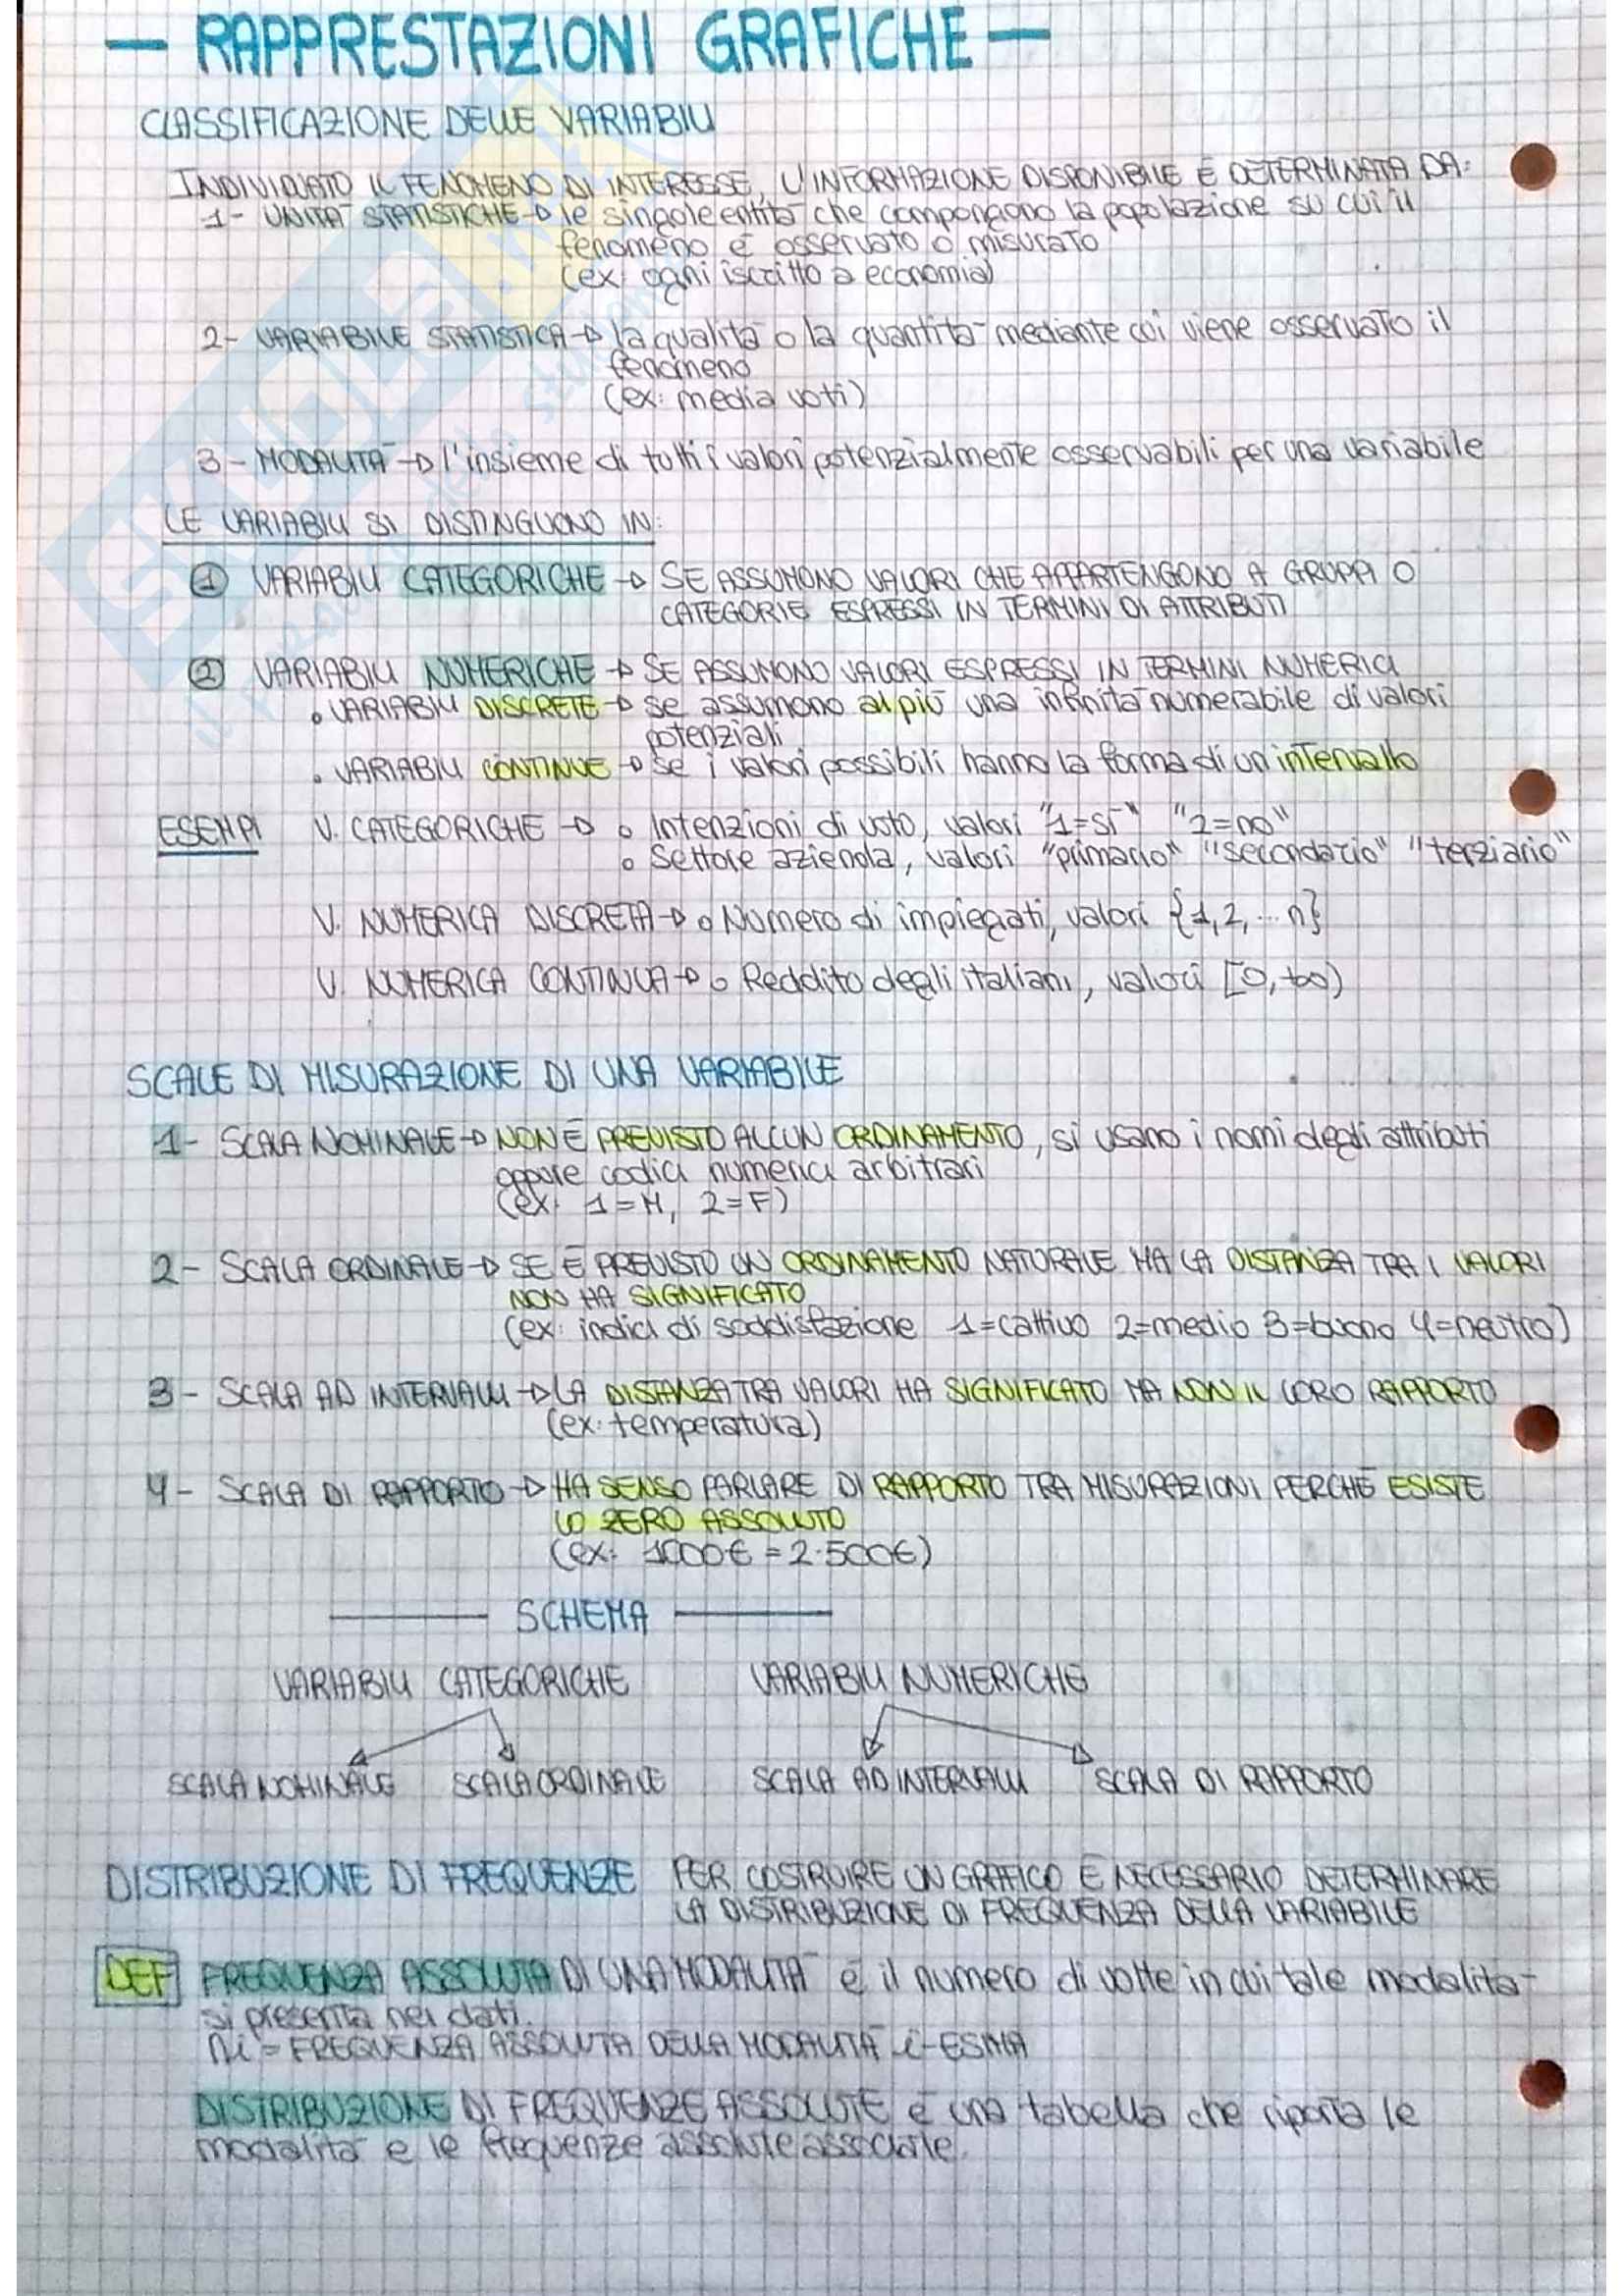 — RAPPRESTAZIONI GRAFICHE —
CLASSIFICAZIONE DELLE VARIABILI
INDIVIDUATO IL FENOMENO DI INTERESSE, L'INFORMAZIONE DISPONIBILE È DETERMINATA DA:
1- UNITÀ STATISTICHE → le singole entità che compongono la popolazione su cui il
fenomeno è osservato o misurato
(ex: ogni iscritto a economia)
2- VARIABILE STATISTICA → la qualità o la quantità mediante cui viene osservato il
fenomeno
(ex: media voti)
3- MODALITÀ → l'insieme di tutti i valori potenzialmente osservabili per una variabile
LE VARIABILI SI DISTINGUONO IN:
① VARIABILI CATEGORICHE → SE ASSUMONO VALORI CHE APPARTENGONO A GRUPPI O
CATEGORIE ESPRESSI IN TERMINI DI ATTRIBUTI
② VARIABILI NUMERICHE → SE ASSUMONO VALORI ESPRESSI IN TERMINI NUMERICI
• VARIABILI DISCRETE → se assumono al più una infinità numerabile di valori
potenziali
• VARIABILI CONTINUE → se i valori possibili hanno la forma di un intervallo
ESEMPI V. CATEGORICHE → o Intenzioni di voto, valori "1=sì" "2=no"
o Settore azienda, valori "primario" "secondario" "terziario"
V. NUMERICA DISCRETA → o Numero di impiegati, valori {1,2,...n}
V. NUMERICA CONTINUA → o Reddito degli italiani, valori [0,+∞)
SCALE DI MISURAZIONE DI UNA VARIABILE
1- SCALA NOMINALE → NON È PREVISTO ALCUN ORDINAMENTO, si usano i nomi degli attributi
oppure codici numerici arbitrari
(ex: 1=M, 2=F)
2- SCALA ORDINALE → SE È PREVISTO UN ORDINAMENTO NATURALE MA LA DISTANZA TRA I VALORI
NON HA SIGNIFICATO
(ex: indici di soddisfazione 1=cattivo 2=medio 3=buono 4=neutro)
3- SCALA AD INTERVALLI → LA DISTANZA TRA VALORI HA SIGNIFICATO MA NON IL LORO RAPPORTO
(ex: temperatura)
4- SCALA DI RAPPORTO → HA SENSO PARLARE DI RAPPORTO TRA MISURAZIONI PERCHÉ ESISTE
LO ZERO ASSOLUTO
(ex: 1000€ = 2·500€)
— SCHEMA —
VARIABILI CATEGORICHE VARIABILI NUMERICHE
SCALA NOMINALE SCALA ORDINALE SCALA AD INTERVALLI SCALA DI RAPPORTO
DISTRIBUZIONE DI FREQUENZE PER COSTRUIRE UN GRAFICO È NECESSARIO DETERMINARE
LA DISTRIBUZIONE DI FREQUENZA DELLA VARIABILE
DEF FREQUENZA ASSOLUTA DI UNA MODALITÀ è il numero di volte in cui tale modalità
si presenta nei dati.
ni = FREQUENZA ASSOLUTA DELLA MODALITÀ i-ESIMA
DISTRIBUZIONE DI FREQUENZE ASSOLUTE è una tabella che riporta le
modalità e le frequenze assolute associate.